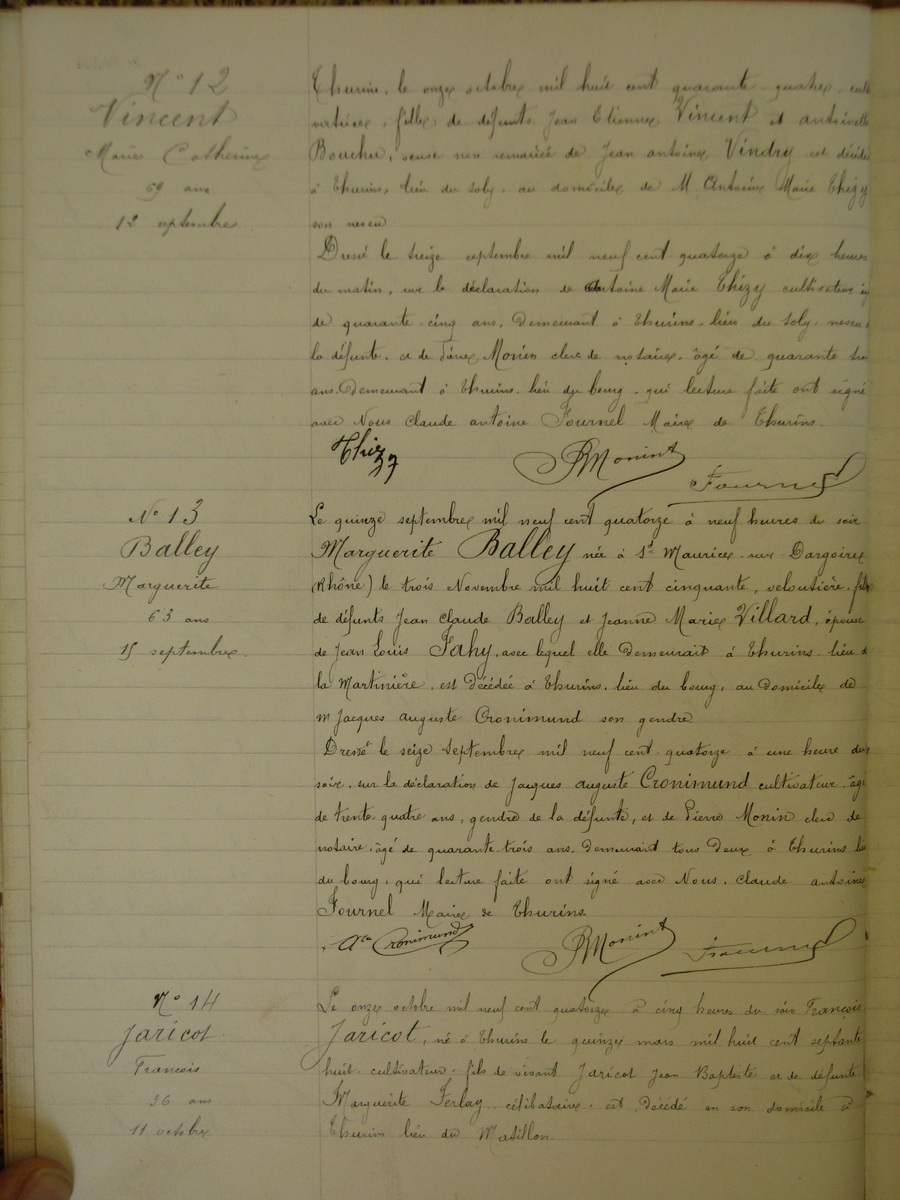 N° 12
Vincent
Marie Catherine
69 ans
12 septembre
Thurins, le onze octobre mil huit cent quarante quatre, cult
natrice, fille de défunts Jean Etienne Vincent et antoinette
Bouchu, veuve non remariée de Jean antoine Vindry est décédée
à Thurins, lieu du Soly, au domicile de M. Antoine Marie Thizy
son neveu
Dressé le treize septembre mil neuf cent quatorze à dix heures
du matin, sur la déclaration de Antoine Marie Thizy cultivateur
de quarante-cinq ans, demeurant à Thurins, lieu du Soly, neveu
la défunte, et de Pierre Monin clerc de notaire, âgé de quarante
ans, demeurant à Thurins lieu du bourg, qui lecture faite ont signé
avec Nous Claude antoine Fournel Maire de Thurins.
Thizy PMonin Fournel
N° 13
Balley
Marguerite
63 ans
15 septembre.
Le quinze septembre mil neuf cent quatorze à neuf heures du soir
Marguerite Balley née à St Maurice-sur-Dargoire
(Rhône) le trois Novembre mil huit cent cinquante, veloutière, fille
de défunts Jean Claude Balley et Jeanne Marie Villard, épouse
de Jean Louis Fahy, avec lequel elle demeurait à Thurins lieu d
la Martinière, est décédée à Thurins, lieu du bourg, au domicile de
M Jacques auguste Cronimund son gendre
Dressé le seize Septembre mil neuf cent quatorze à une heure du
soir, sur la déclaration de Jacques auguste Cronimund cultivateur, âgé
de trente quatre ans, gendre de la défunte, et de Pierre Monin clerc de
notaire, âgé de quarante trois ans, demeurant tous deux à Thurins li
du bourg, qui lecture faite ont signé avec Nous, Claude antoine
Fournel Maire de Thurins.
Cronimund PMonin Fournel
N° 14
Jaricot
François
36 ans
11 octobre
Le onze octobre mil neuf cent quatorze à cinq heures du soir François
Jaricot, né à Thurins le quinze mars mil huit cent septante
huit, cultivateur, fils de vivant Jaricot Jean Baptiste et de défunte
Marguerite Ferlay, célibataire, est décédé en son domicile à
Thurins lieu du Matillon.